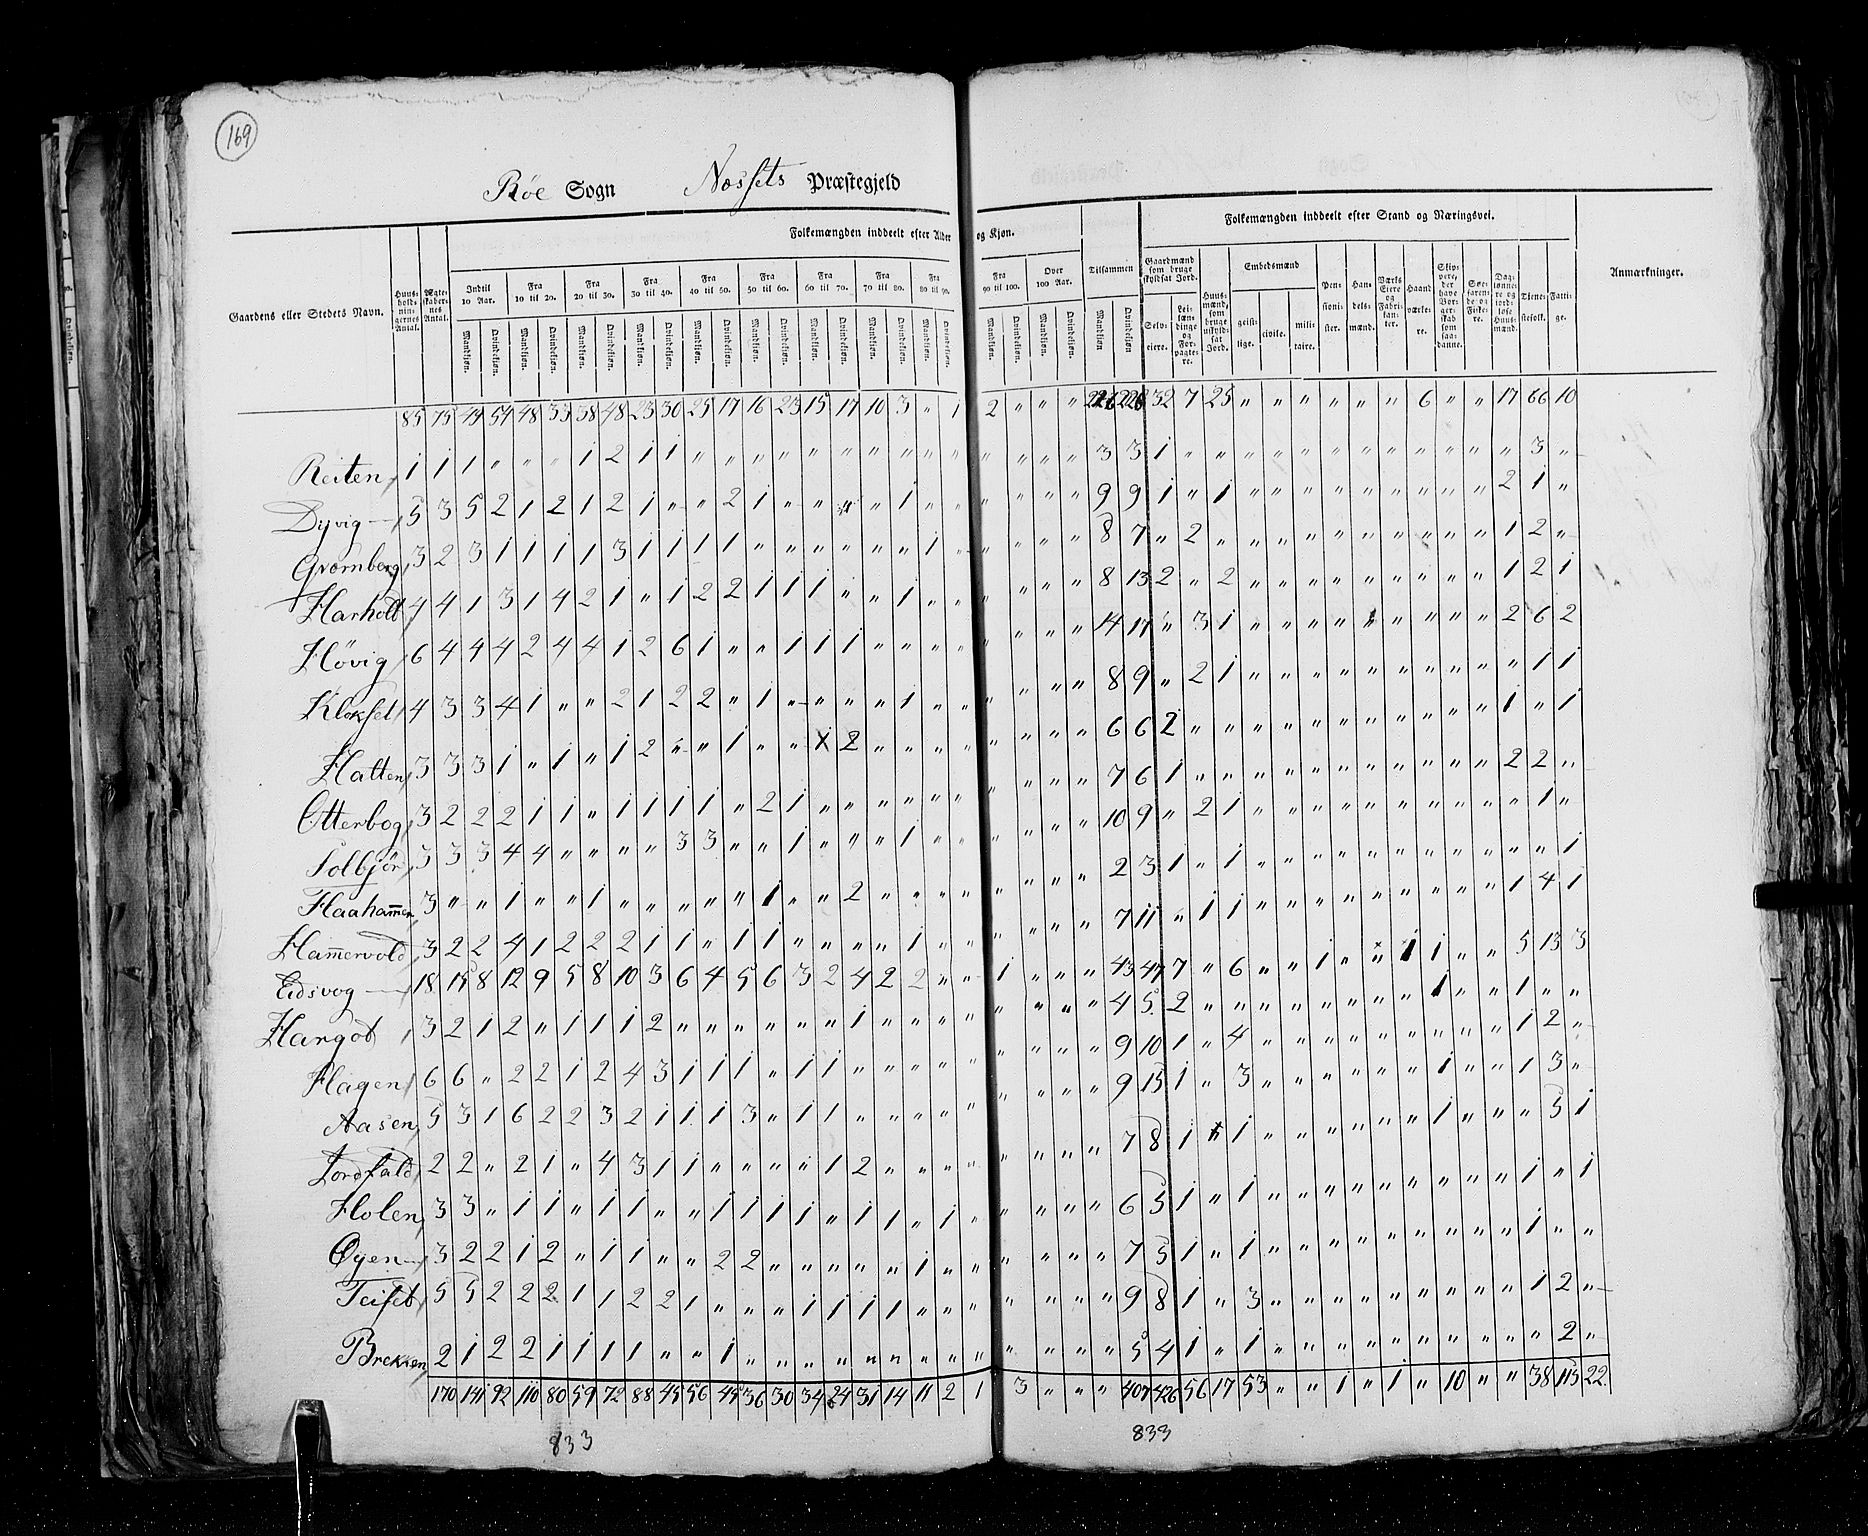 169
Röe Sogn Næssets Præstegjeld
Folkemængden inddeelt efter Alder og Kjøn.
Folkemængden inddeelt efter Stand og Næringsvei.
Gaardens eller Stedets Navn.
Huus-holdnin-gernes Antal.
Ægte-skaber-nes Antal.
Indtil 10 Aar.
Fra 10 til 20.
Fra 20 til 30.
Fra 30 til 40.
Fra 40 til 50.
Fra 50 til 60.
Fra 60 til 70.
Fra 70 til 80.
Fra 80 til 90.
Fra 90 til 100.
Over 100 Aar.
Tilsammen
Mandkjøn. Qvindekjøn.
Gaardmænd som bruge skyldsat Jord.
Selv-eiere.
Lei-læn-dinge og For-pagte-re.
Huus-mænd, som bruge uskyld-sat Jord.
Embedsmænd
geist-lige.
civile.
mili-taire.
Pen-sioni-ster.
Han-dels-mænd.
Værks Eiere og Fabri-kan-ter.
Haand værke-re.
Skip-pere, der have Bor-ger-skab som saa-danne.
Søe-faren-de og Fiske-re.
Dag-lønne-re og jord-løse Huus-mænd.
Tjene-stefolk.
Fatti-ge.
Anmærkninger.
85 75 49 54 48 33 38 48 23 30 25 17 16 23 15 17 10 3 " 1 2 " " " 226 228 32 7 25 " " " " " " 6 " " 17 66 10
Reiten 1 1 1 " " " 1 2 1 1 " " " " " " " " " " " " " " 3 3 1 " " " " " " " " " " " " 3 "
Dyvig 5 3 5 2 1 2 1 2 1 " " 2 1 " " " " 1 " " " " " " 9 9 1 " 1 " " " " " " " " " 2 1 "
Grømberg 3 2 3 1 1 1 1 3 1 1 1 1 " " " " " " 1 " " " " " 8 7 " 2 " " " " " " " " " " 1 2 "
Harholt 4 4 1 3 1 4 2 1 " 1 2 2 1 1 1 " " 1 " " " " " " 8 13 2 " 2 " " " " " " " " " 1 2 1
Høvig 6 4 4 4 2 4 4 1 2 6 1 " " 1 1 1 " " " " " " " " 14 17 " 3 1 " " " " " " " " " 2 6 2
Klokset 4 3 3 4 1 " " 2 1 2 2 " 1 " " " " 1 " " " " " " 8 9 " 2 1 " " " " " " " " " " 1 1
Hatten 3 3 3 1 " 1 " 1 2 " " 1 " " 2 " " " " " " " " 6 6 2 " " " " " " " " " " " 1 " 1
Otterbog 3 2 2 2 1 1 " 1 1 1 1 " 2 1 " " " " " " " " " " 7 6 1 " " " " " " " " " " " 2 2 "
Solbjör 3 3 3 4 4 " " " " 3 3 " " 1 " " " 1 " " " " " " 10 9 " 2 1 " " " " " " " " " " 1 "
Haahamer 3 " " 1 " " 1 " " " " " 1 " " 2 " " " " " " " " 2 3 1 " 1 " " " " " " " " " " " 1
Hamervold 3 2 2 4 1 2 2 2 1 1 " 1 1 " " " " 1 " " " " " " 7 11 " 1 1 " " " " " " " " " 1 4 1
Eidsvog 18 15 8 12 9 5 8 10 3 6 4 5 6 3 2 4 2 2 " " 1 " " " 43 47 7 " 6 " " 1 " " 1 1 " " 5 13 3
Hargöt 3 2 1 2 " 1 1 1 2 " " " " " " 1 " " " " " " " " 4 5 2 " " " " " " " " 1 " " 1 " "
Hagen 6 6 " 2 2 1 2 4 3 1 1 1 " 1 1 " " " " " " " " " 9 10 1 " 4 " " " " " " " " " 1 2 "
Aasen 5 3 1 6 2 2 3 2 1 1 1 3 " 1 1 " " " " " " " " " 9 15 1 " 3 " " " " " " 1 " " 1 3 "
Jordfald 2 2 " 2 1 " 4 3 1 1 " " " " 1 2 " " " " " " " " 7 8 1 " 1 " " " " " " 1 " " " 5 1
Holen 3 3 " 1 1 " 1 1 " " 1 1 1 1 " 1 1 " 1 " " " " " 6 5 1 " 1 " " " " " " " " " 1 " 1
Øyen 3 2 2 1 2 " 1 1 " " 2 2 " " " " " 1 " " " " " " 7 5 1 " 1 " " " " " " " " " 1 " "
Teiset 5 5 2 2 2 1 1 2 2 1 " " " 1 1 1 1 " " " " " " " 9 8 1 " 3 " " " " " " " " " 1 2 "
Brekken 2 1 2 2 1 1 1 1 " " 1 " " " " " " " " " " " " " 5 4 1 " 1 " " " " " " " " " " 2 "
170 141 92 110 80 59 72 88 45 56 45 36 30 34 24 31 14 11 2 1 3 " " " 407 426 56 17 53 " " 1 " 1 " 10 " " 38 113 22
833
833